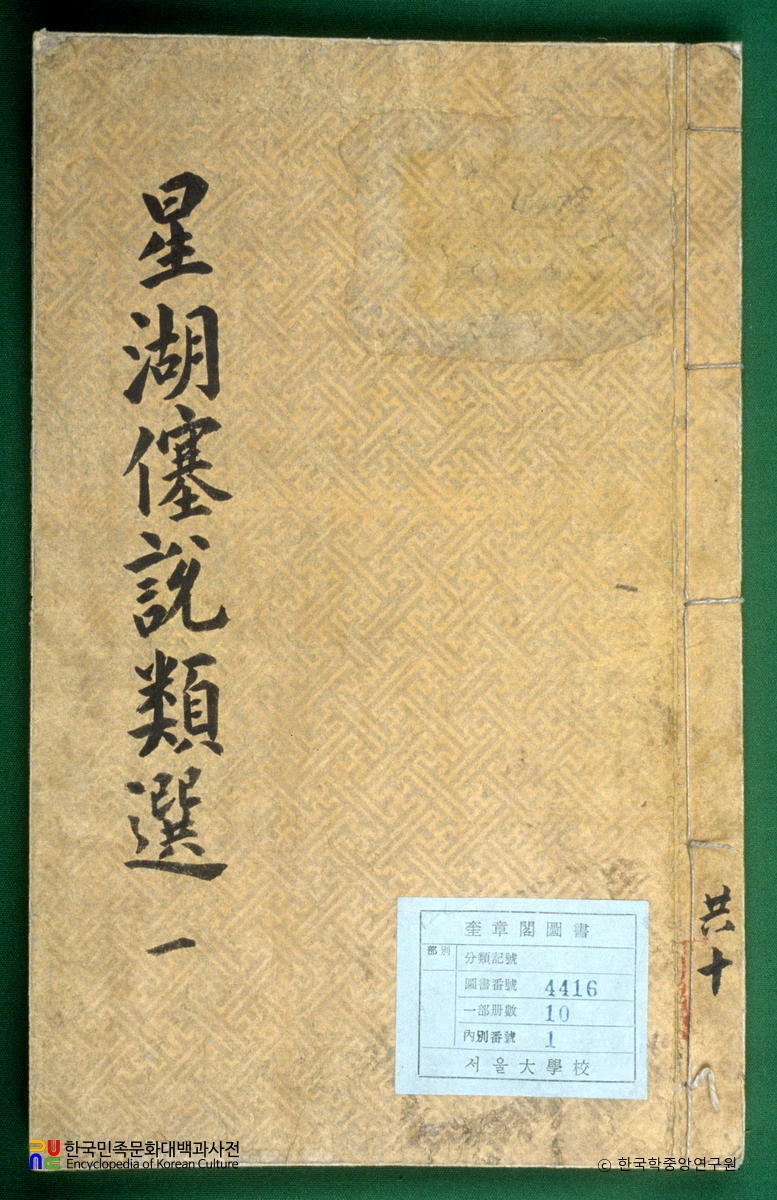 星湖僿說類選 一
共十
奎章閣圖書
部別
分類記號
圖書番號 4416
一部册數 10
內別番號 1
서울大學校
한국민족문화대백과사전
Encyclopedia of Korean Culture
© 한국학중앙연구원